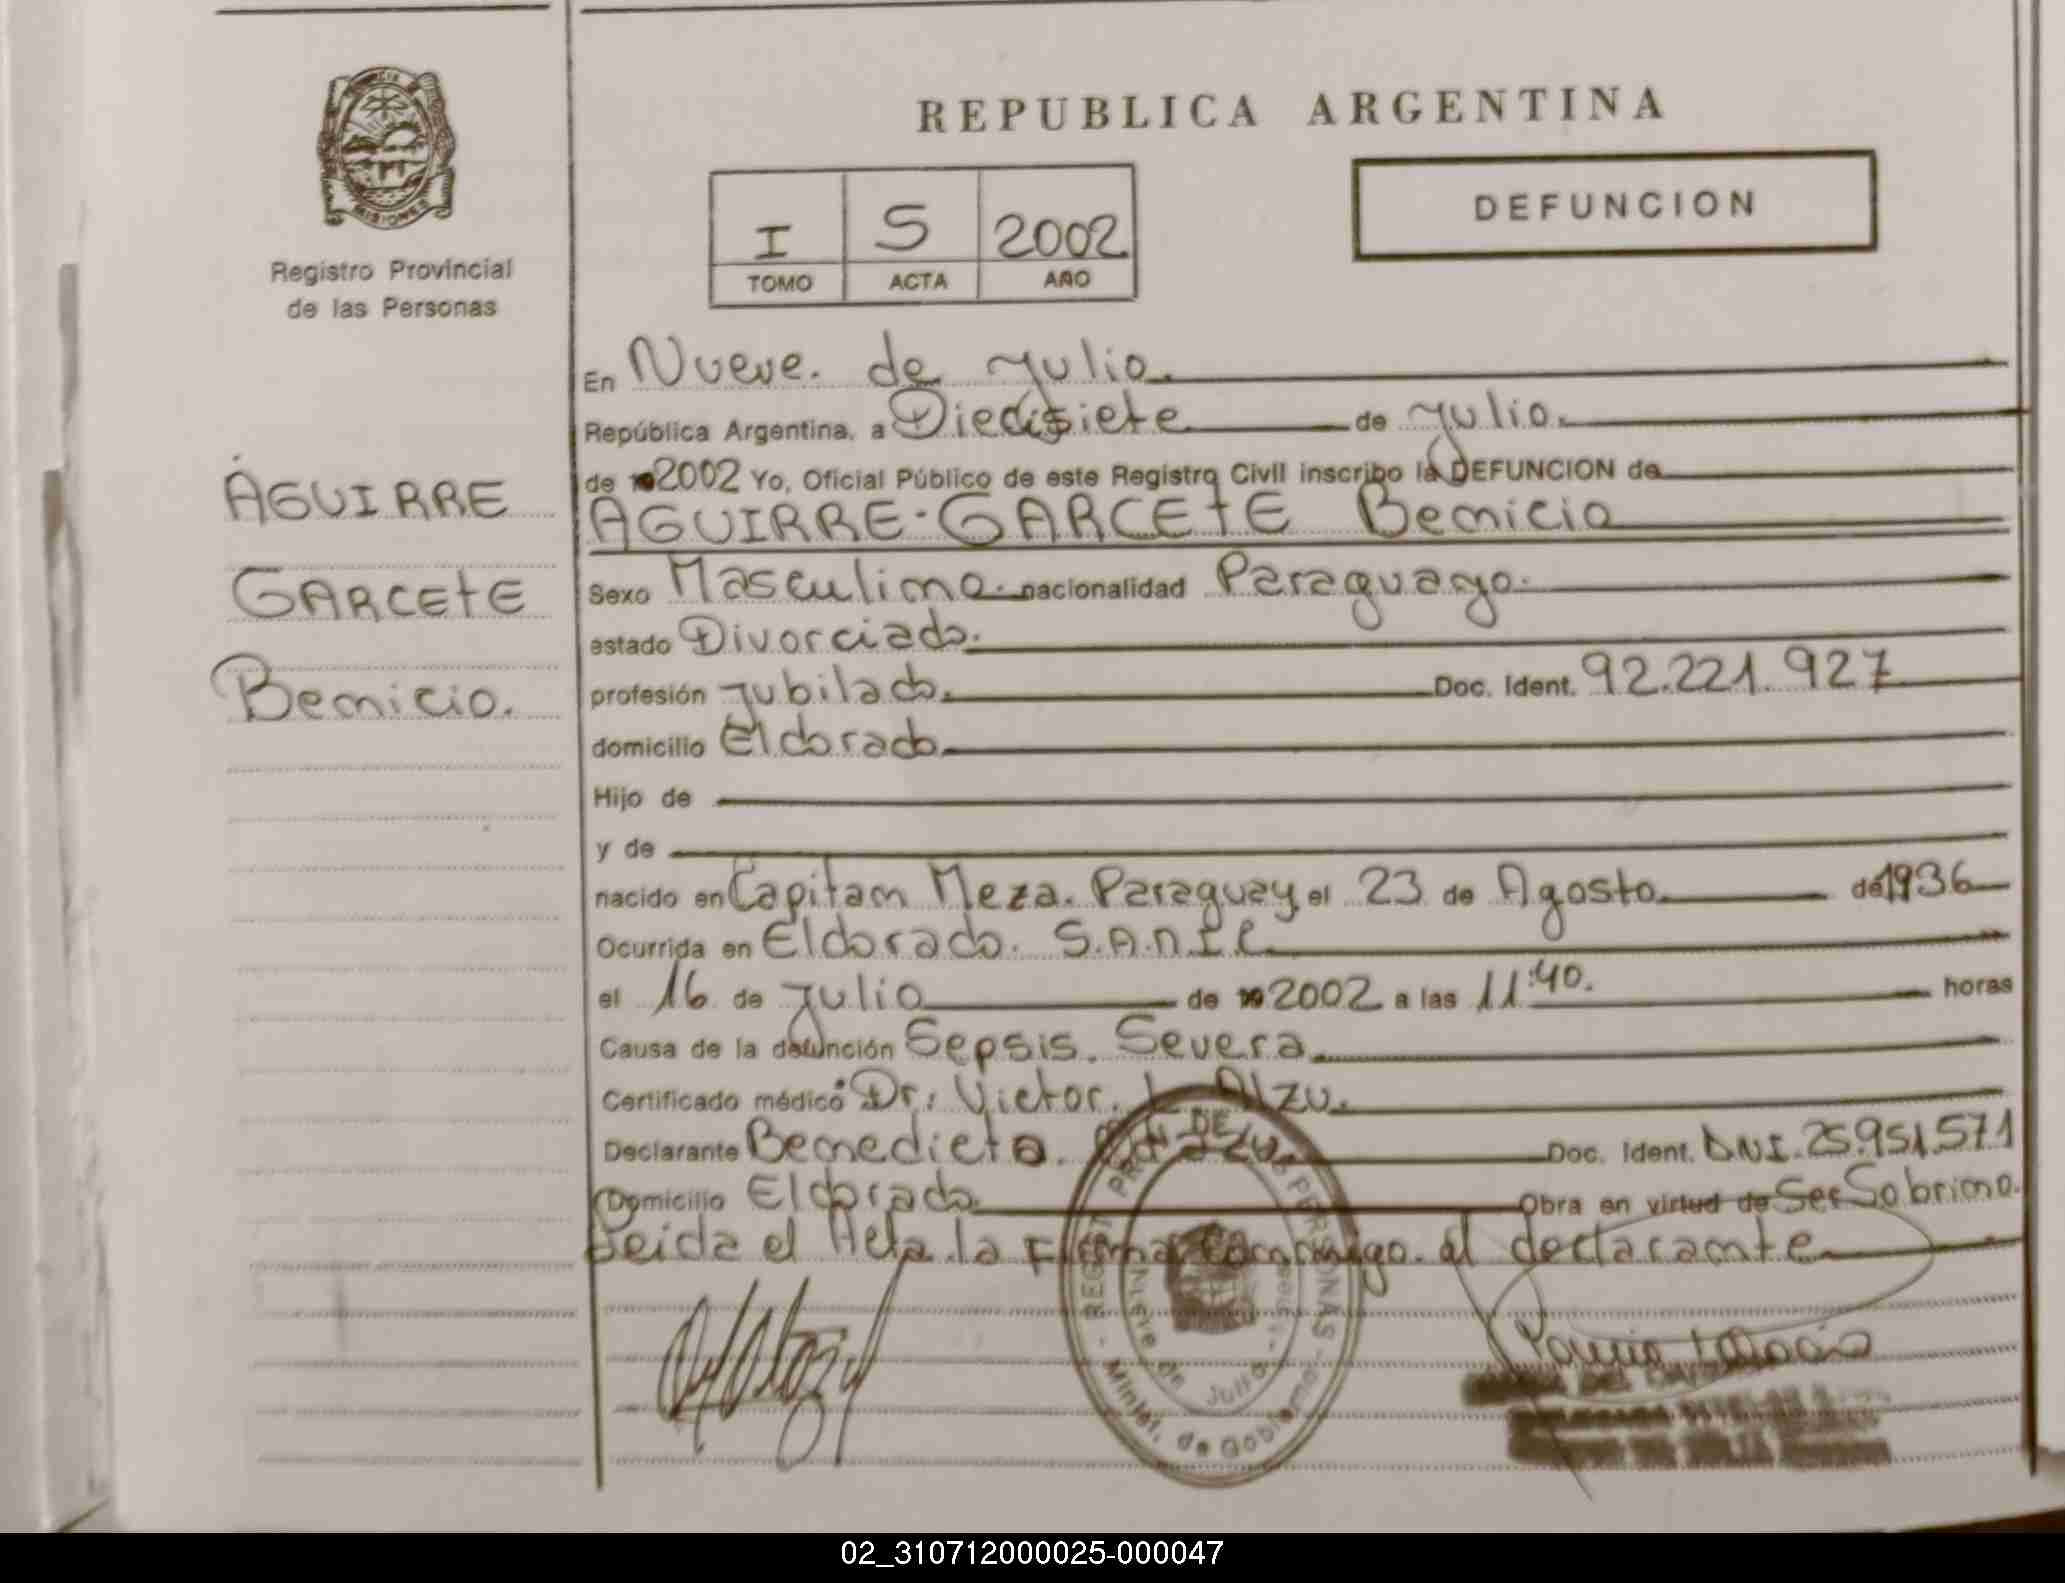 REPUBLICA ARGENTINA
DEFUNCION
MISIONES
Registro Provincial
de las Personas
I 5 2002
TOMO ACTA AÑO
AGUIRRE
GARCETE
Benicio.
En Nueve de Julio.
República Argentina, a Diecisiete de Julio.
de 2002 Yo, Oficial Público de este Registro Civil inscribo la DEFUNCION de
AGUIRRE-GARCETE Benicio
Sexo Masculino. nacionalidad Paraguayo.
estado Divorciado.
profesión Jubilado. Doc. Ident. 92.221.927
domicilio Eldorado.
Hijo de
y de
nacido en Capitan Meza. Paraguay, el 23 de Agosto de 1936
Ocurrida en Eldorado. S.A.M.I.C.
el 16 de Julio de 2002 a las 11:40. horas
Causa de la defunción Sepsis. Severa.
Certificado médico Dr: Victor. L. Alzu.
Declarante Benedicto. Doc. Ident. DNI. 25.951.571
Domicilio Eldorado. Obra en virtud de Ser Sobrino.
Leida el Acta la Firma Conmigo. el declarante
DE PERSONAS
Nueve de Julio
Minist. de Gobierno
02_310712000025-000047